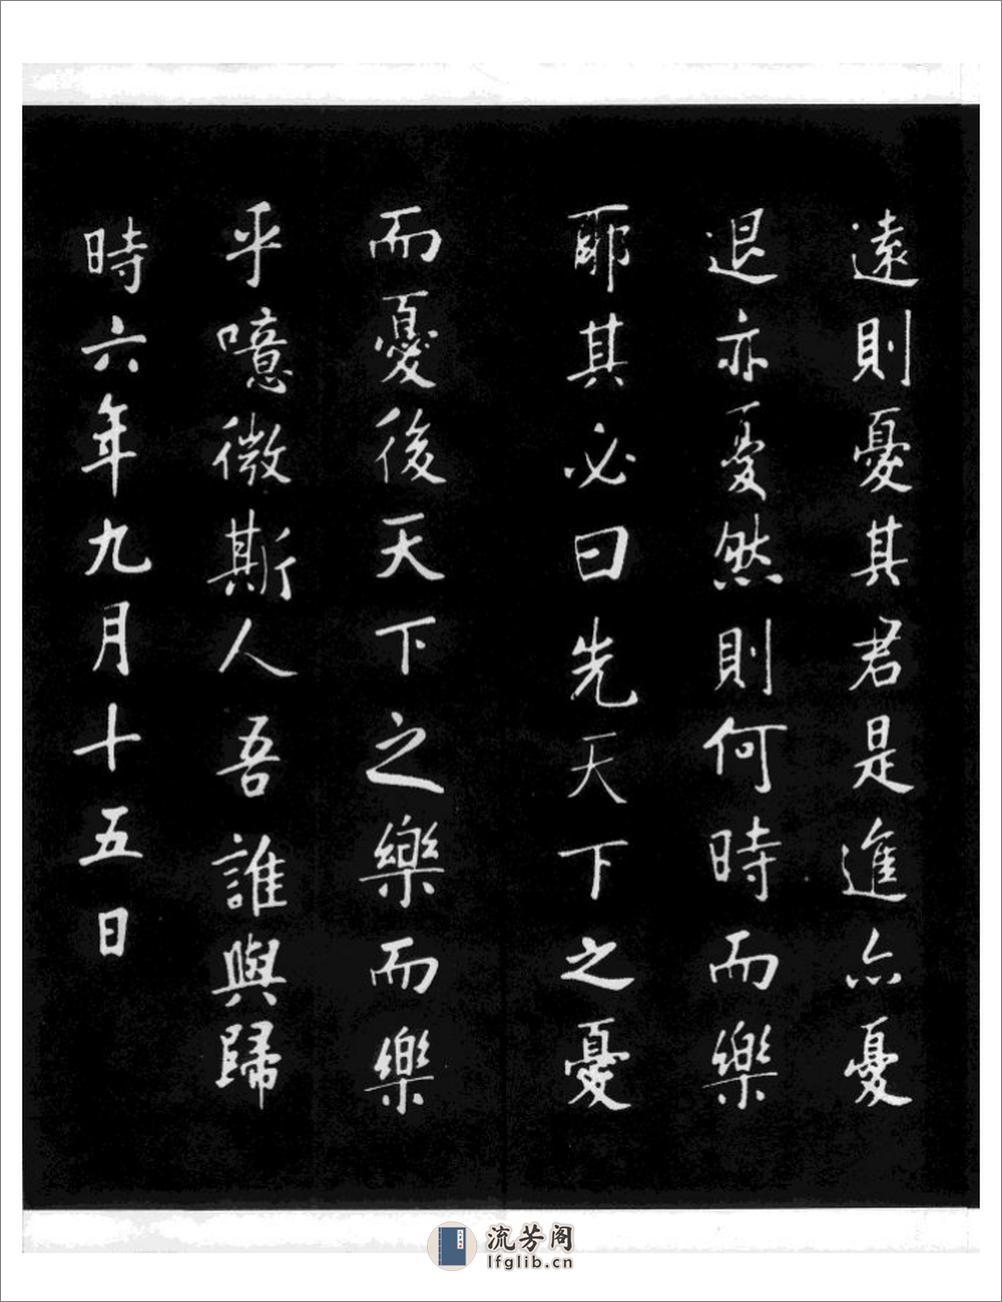 遠則憂其君是進亦憂
退亦憂然則何時而樂
耶其必曰先天下之憂
而憂後天下之樂而樂
乎噫微斯人吾誰與歸
時六年九月十五日
流芳阁
lfglib.cn